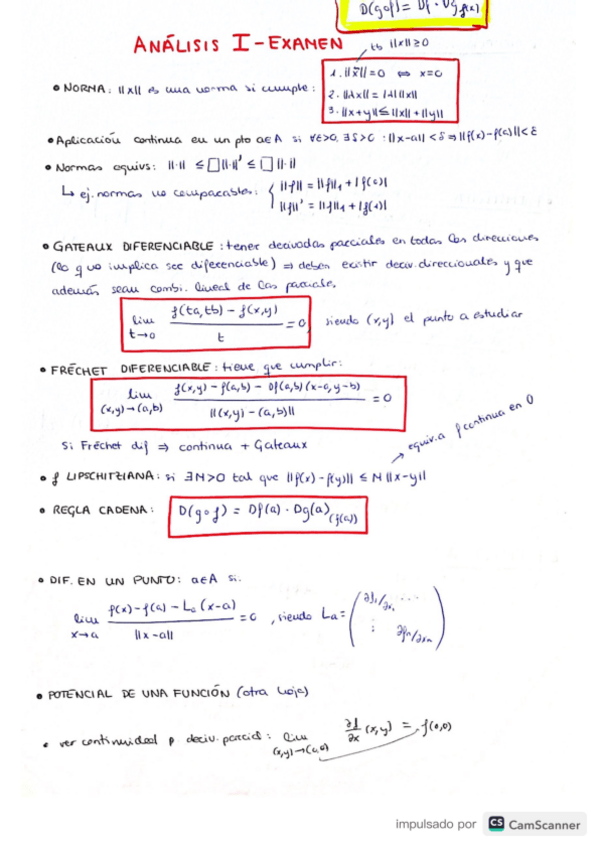 D(g∘f) = Df · Dg f(x)
ANÁLISIS I - EXAMEN
tb ||x|| ≥ 0
• NORMA: ||x|| es una norma si cumple:
1. ||x|| = 0 ⇔ x=0
2. ||λx|| = |λ| ||x||
3. ||x+y|| ≤ ||x|| + ||y||
• Aplicación continua en un pto a∈A si ∀ε>0, ∃δ>0 : ||x-a|| < δ ⇒ ||f(x)-f(a)|| < ε
• Normas equivs: ||·|| ≤ □||·||' ≤ □||·||
↳ ej. normas no comparables: { ||f|| = ||f||₁ + |f(0)|
||f||' = ||f||₁ + |f(1)|
• GATEAUX DIFERENCIABLE: tener derivadas parciales en todas las direcciones
(lo q no implica ser diferenciable) ⇒ deben existir deriv. direccionales y que
además sean combi. lineal de las parciales.
lim t→0 f(ta,tb) - f(x,y) / t = 0 siendo (x,y) el punto a estudiar
• FRÉCHET DIFERENCIABLE: tiene que cumplir:
lim (x,y)→(a,b) f(x,y) - f(a,b) - Df(a,b)(x-a, y-b) / ||(x,y) - (a,b)|| = 0
Si Fréchet dif ⇒ continua + Gateaux
→ equiv. a f continua en 0
• f LIPSCHITZIANA: si ∃M>0 tal que ||f(x) - f(y)|| ≤ M ||x-y||
• REGLA CADENA: D(g∘f) = Df(a) · Dg(a) (f(a))
• DIF. EN UN PUNTO: a∈A si.
lim x→a f(x) - f(a) - La (x-a) / ||x-a|| = 0, siendo La = ( ∂f₁/∂x₁ ...
⋮ ∂fn/∂xn )
• POTENCIAL DE UNA FUNCIÓN (otra hoja)
• ver continuidad p deriv. parcial: lim (x,y)→(0,0) ∂f/∂x (x,y) = f(0,0)
impulsado por CS CamScanner